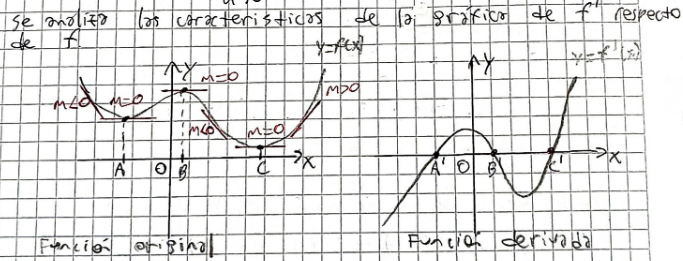 se analiza las características de la gráfica de f' respecto
de f
y=f(x)
Y
m=0
m<0
m=0
m<0
m=0
m>0
A
O
B
C
X
Función original
y=f'(x)
Y
A'
O
B'
C'
X
Función derivada